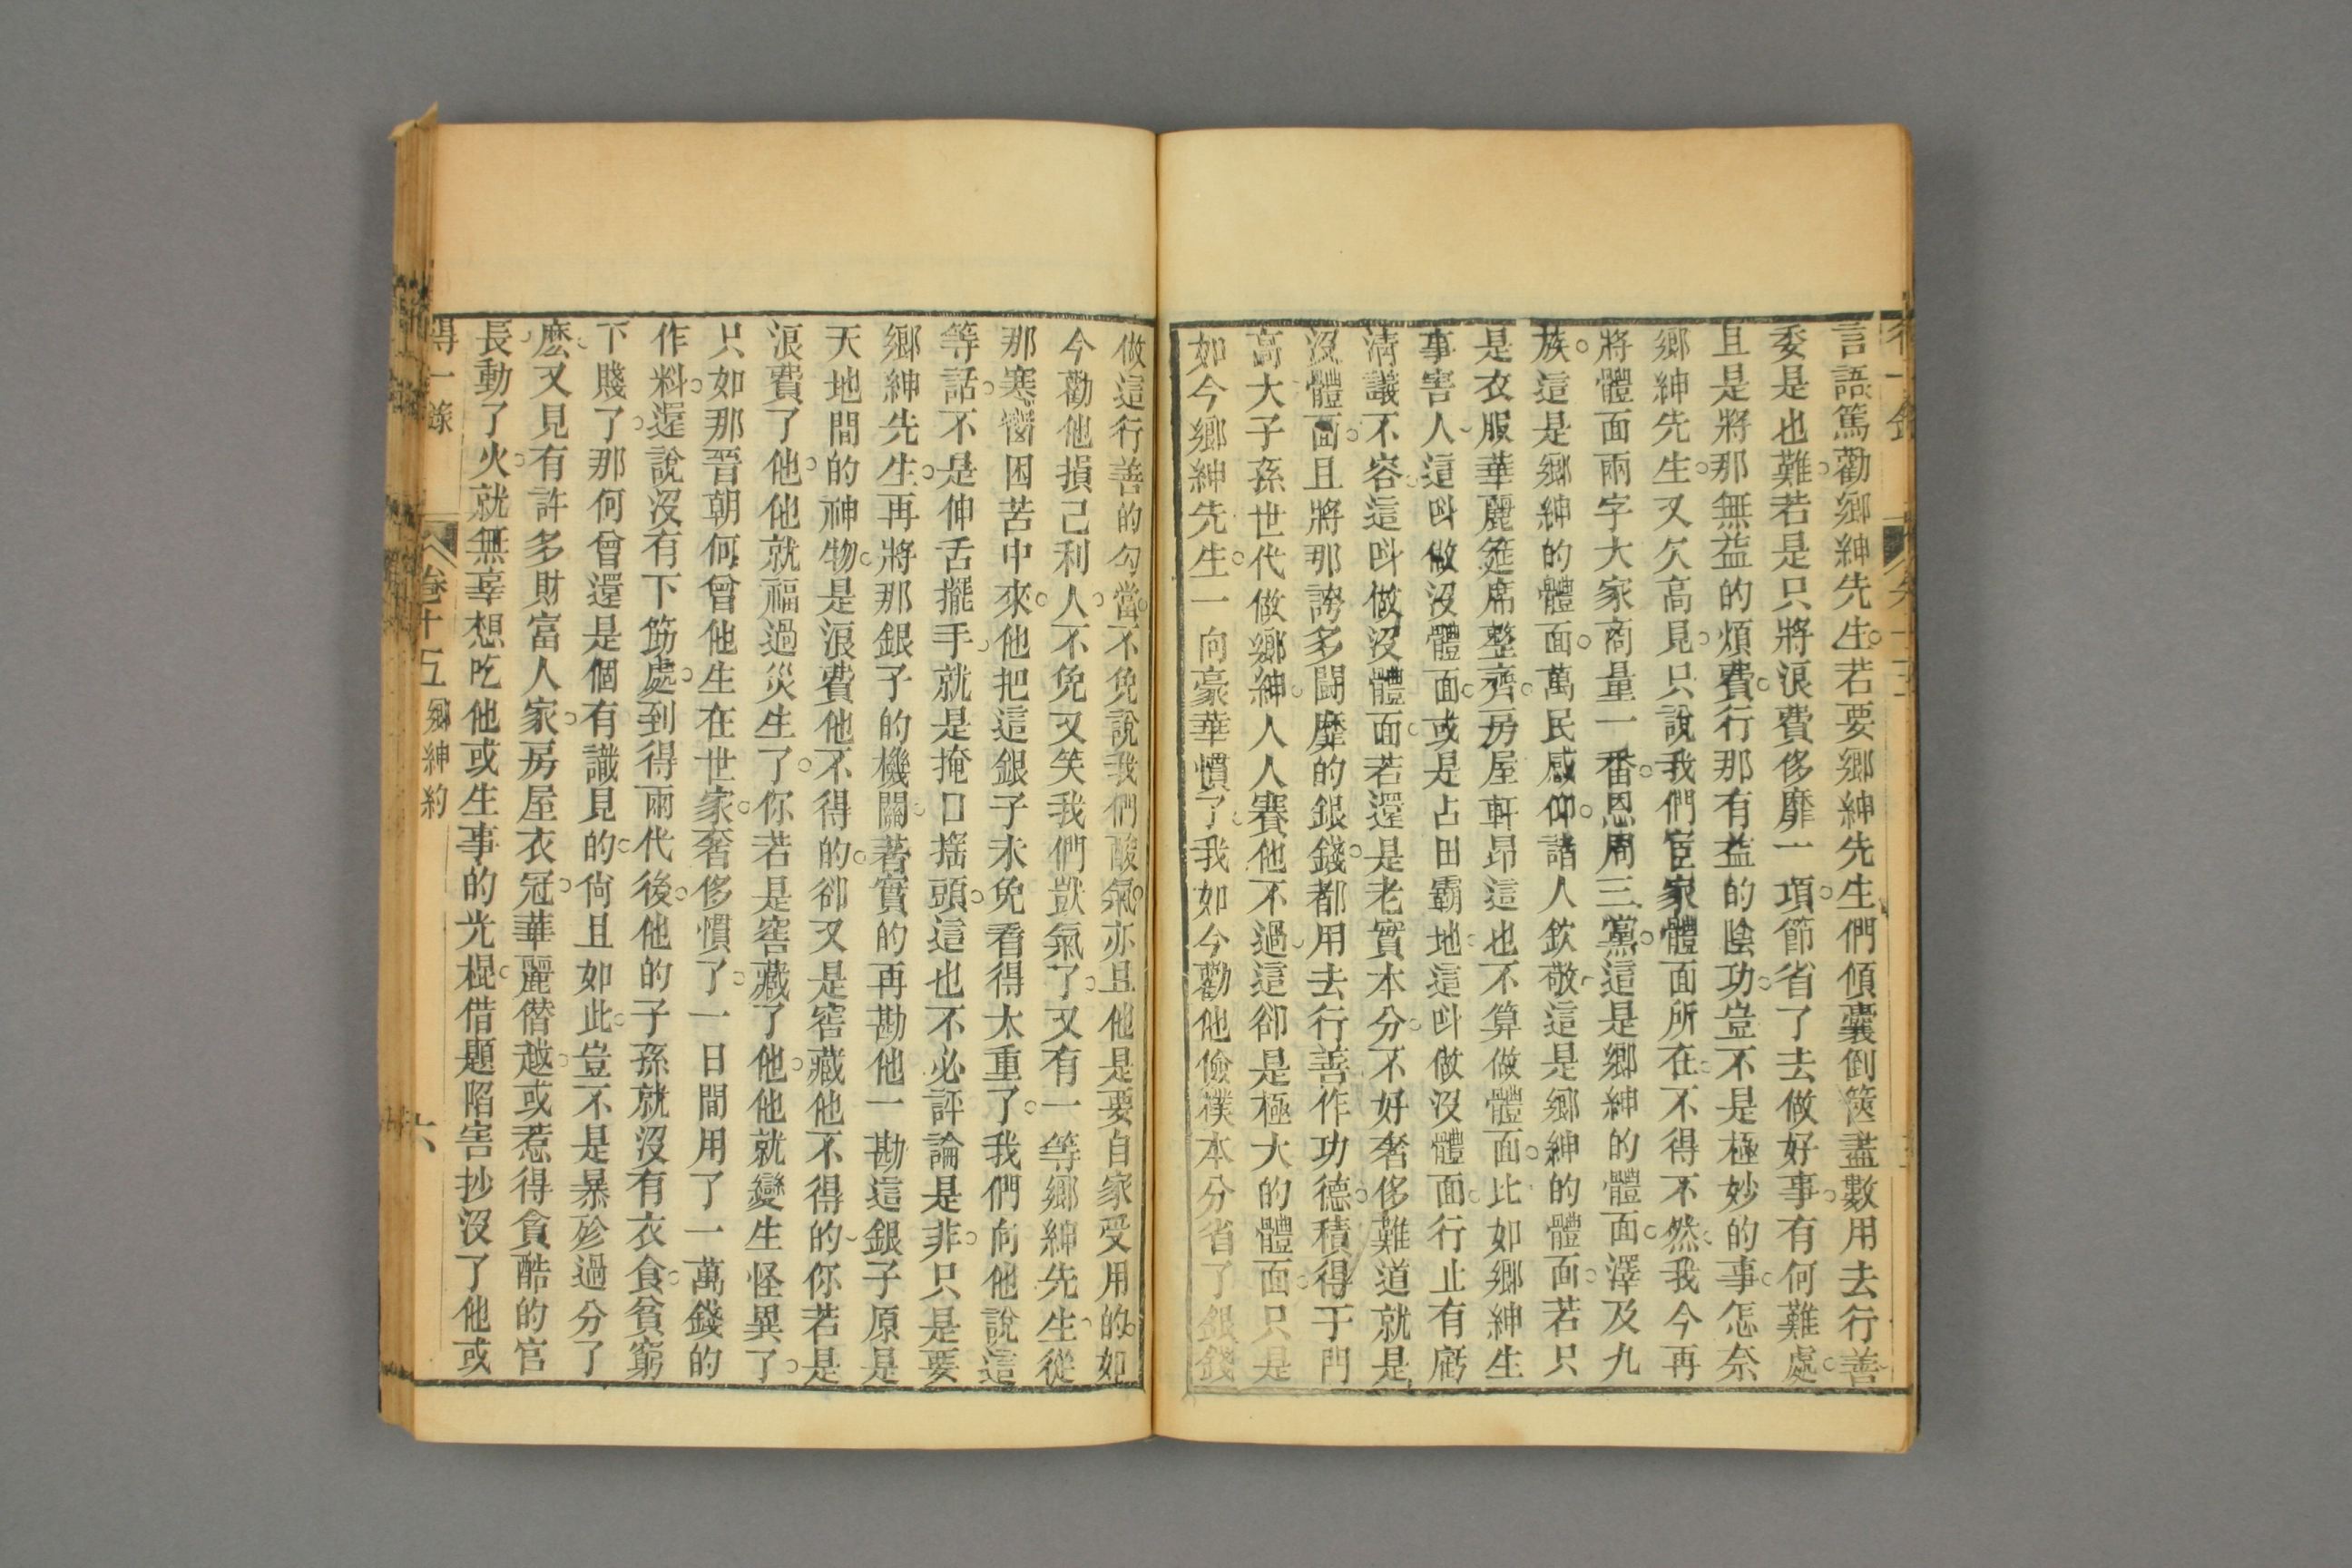 言語篤勸鄉紳先生若要鄉紳先生們傾囊倒篋盡數用去行善
委是也難若是只將浪費侈靡一項節省了去做好事有何難處
且是將那無益的煩費行那有益的陰功豈不是極妙的事怎奈
鄉紳先生又欠高見只說我們宦家體面所在不得不然我今再
將體面兩字大家商量一番恩周三黨這是鄉紳的體面澤及九
族這是鄉紳的體面萬民感仰諸人欽敬這是鄉紳的體面若只
是衣服華麗筵席整齊房屋軒昂這也不算做體面比如鄉紳生
事害人這呌做沒體面或是占田霸地這呌做沒體面行止有虧
清議不容這呌做沒體面若還是老實本分不好奢侈難道就是
沒體面且將那誇多鬪靡的銀錢都用去行善作功德積得于門
高大子孫世代做鄉紳人人賽他不過這卻是極大的體面只是
如今鄉紳先生一向豪華慣了我如今勸他儉樸本分省了銀錢
做這行善的勾當不免說我們酸氣亦且他是要自家受用的如
今勸他損己利人不免又笑我們獃氣了又有一等鄉紳先生從
那寒窗困苦中來他把這銀子未免看得太重了我們向他說這
等話不是伸舌擺手就是掩口搖頭這也不必評論是非只是要
鄉紳先生再將那銀子的機關著實的再勘他一勘這銀子原是
天地間的神物是浪費他不得的卻又是窖藏他不得的你若是
浪費了他他就福過災生了你若是窖藏了他他就變生怪異了
只如那晉朝何曾他生在世家奢侈慣了一日間用了一萬錢的
作料遲說沒有下筯處到得兩代後他的子孫就沒有衣食貧窮
下賤了那何曾還是個有識見的尙且如此豈不是暴殄過分了
麽又見有許多財富人家房屋衣冠華麗僭越或惹得貪酷的官
長動了火就無辜想吃他或生事的光棍借題陷害抄沒了他或
得一錄
卷十五
鄉紳約
六